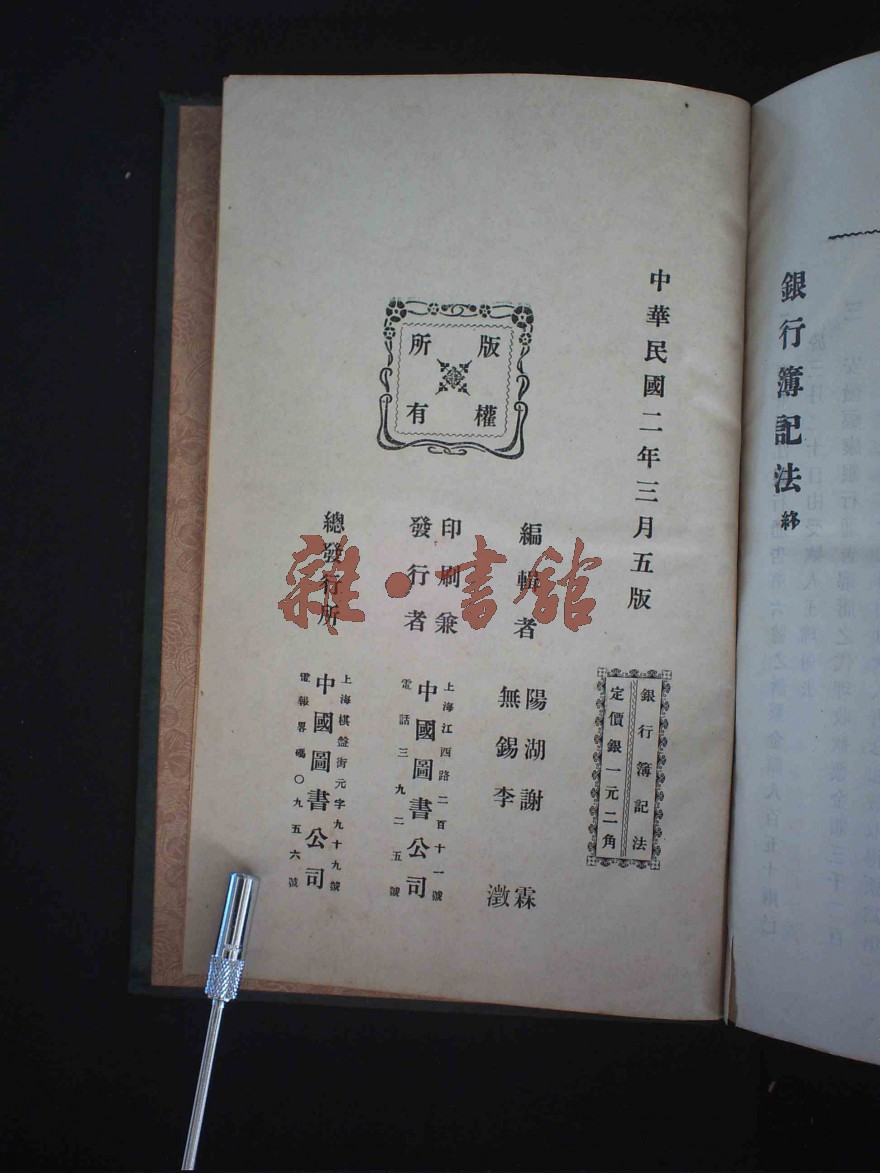 銀行簿記法 終
中華民國二年三月五版
銀行簿記法
定價銀一元二角
版權
所有
編輯者
陽湖謝霖
無錫李澂
印刷兼
發行者
上海江西路二百十一號
中國圖書公司
電話三九二五號
總發行所
上海棋盤街元字九十九號
中國圖書公司
電報畧碼〇九五六號
雜·書館